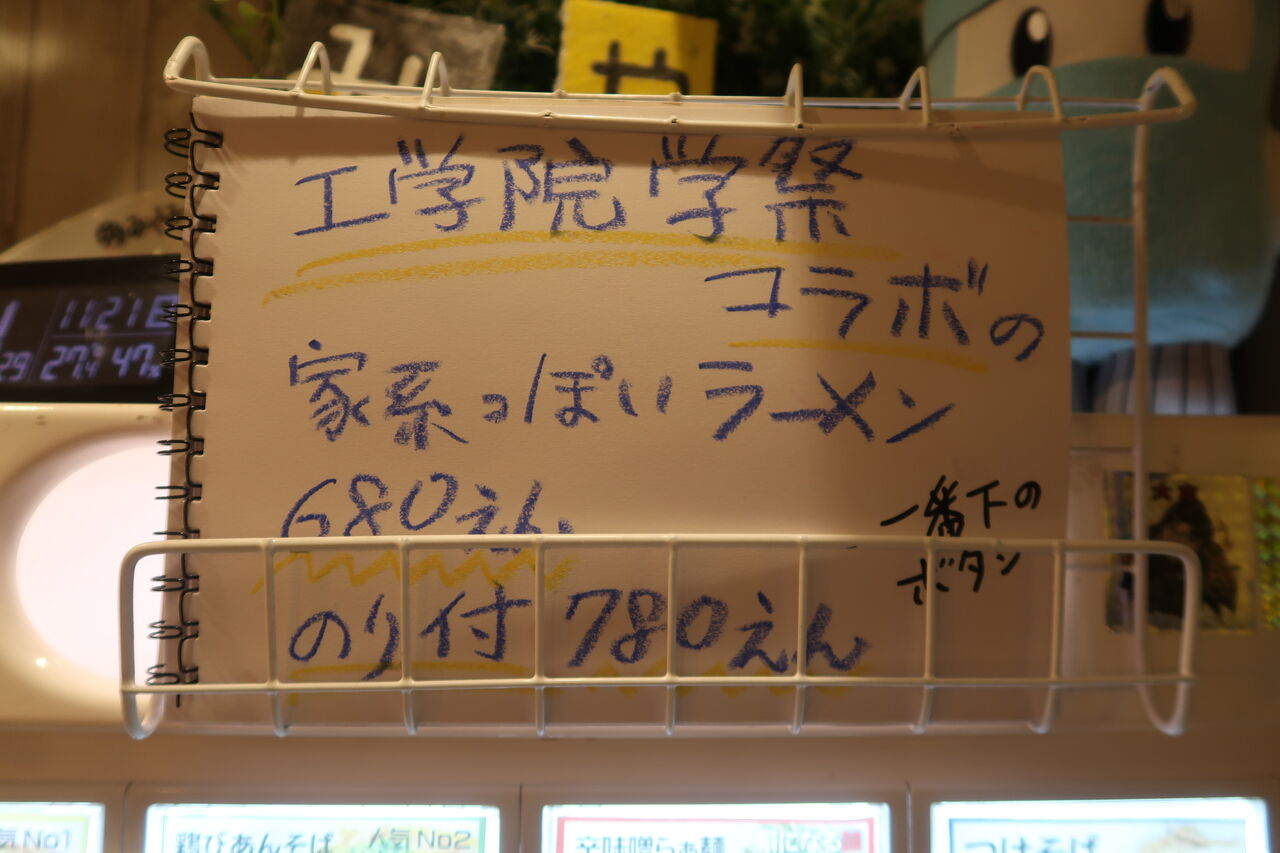 や
工学院学祭
コラボの
家系っぽいラーメン
680えん
一番下の
ボタン
のり付 780えん
1121
29 27.4 47%
気No1
鶏びあんそば 人気No2
辛味噌らぁ麺
つけそば